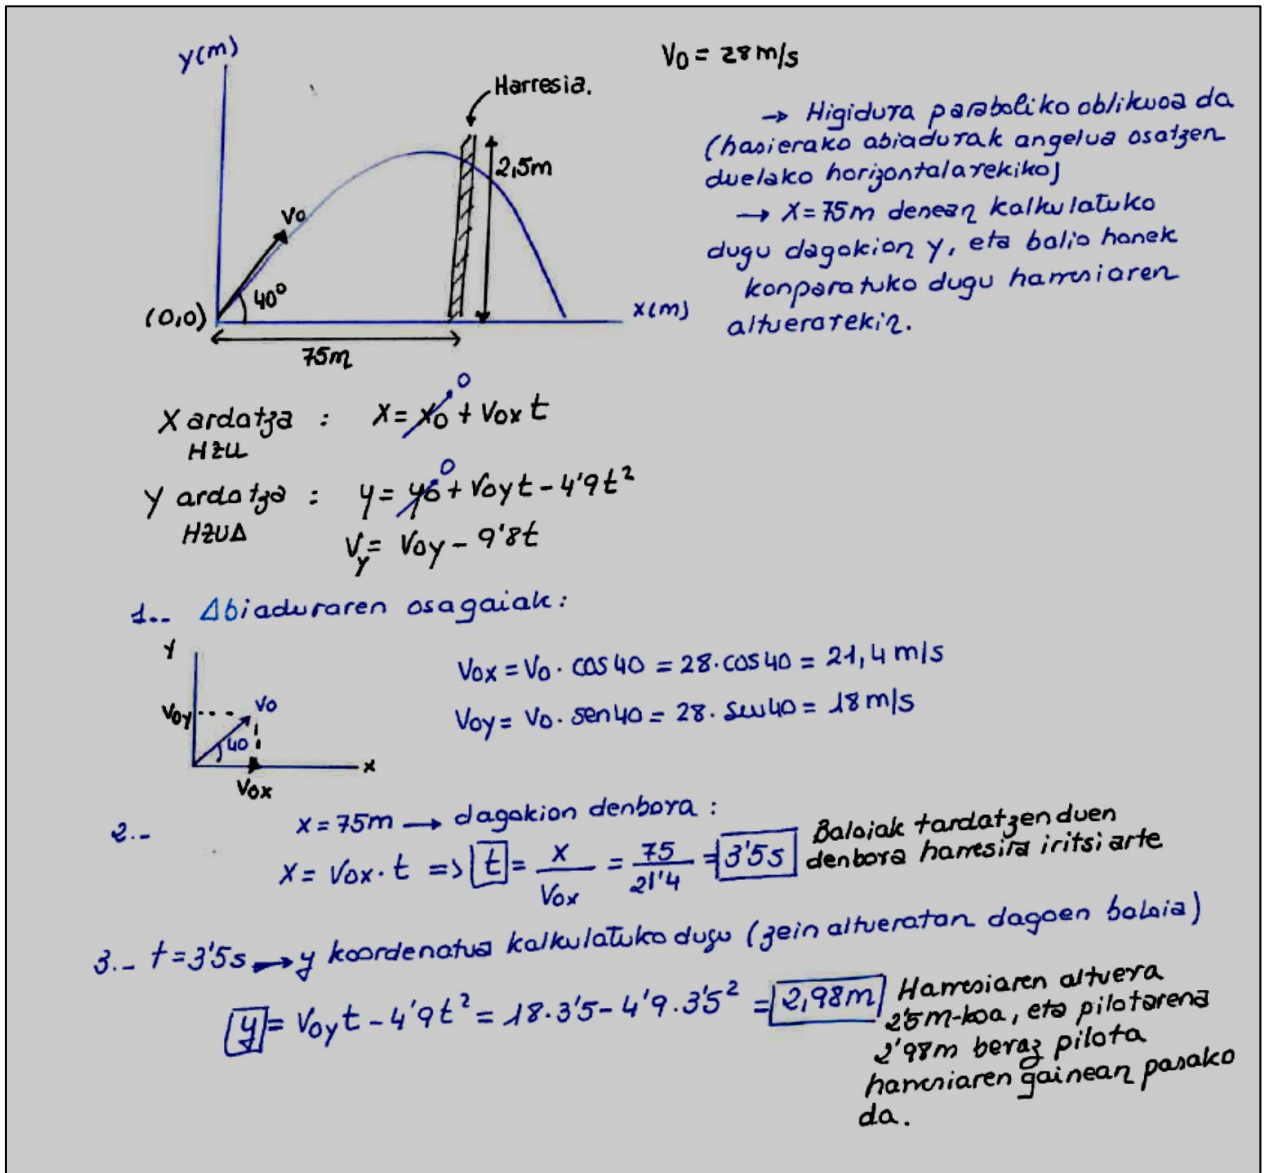 y(m)
V0 = 28 m/s
Harresia.
2,5m
V0
40º
(0,0)
x(m)
75m
→ Higidura paraboliko oblikuoa da
(hasierako abiadurak angelua osatzen
duelako horizontalarekiko)
→ X=75m denean kalkulatuko
dugu dagokion y, eta balio honek
konparatuko dugu harresiaren
altuerarekin.
X ardatza : X = x0 + V0x t
0
HZU
Y ardatza : y = y0 + V0y t - 4'9 t²
0
HZUA
Vy = V0y - 9'8t
1.. Abiaduraren osagaiak:
Y
V0y
V0
40
X
V0x
V0x = V0 · cos 40 = 28 · cos 40 = 21,4 m/s
V0y = V0 · sen 40 = 28 · sen 40 = 18 m/s
2.- x = 75m → dagokion denbora :
X = V0x · t => t = X / V0x = 75 / 21'4 = 3'5s
Baloiak tardatzen duen
denbora harresira iritsi arte
3.- t = 3'5s → y koordenatua kalkulatuko dugu (zein altueratan dagoen baloia)
y = V0y t - 4'9 t² = 18 · 3'5 - 4'9 · 3'5² = 2,98m
Harresiaren altuera
2'5m-koa, eta pilotarena
2'98m beraz pilota
harresiaren gainean pasako
da.